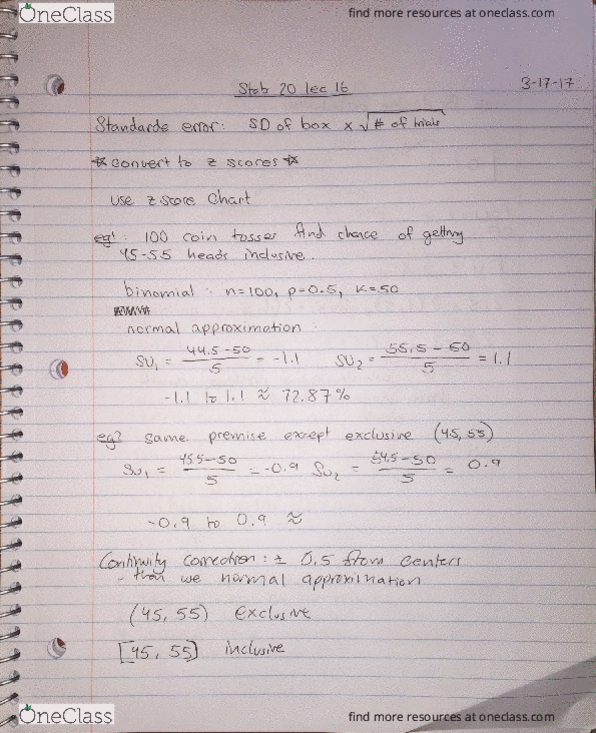 OneClass find more resources at oneclass.com
Stab 20 lec 16 3-17-17
Standards error: SD of box x √# of trials
* convert to z scores *
use z score chart
eg1: 100 coin tosses find chance of getting
45-55 heads inclusive.
binomial: n=100, p=0.5, k=50
normal approximation:
SU₁ = 44.5-50 / 5 = -1.1 SU₂ = 55.5-50 / 5 = 1.1
-1.1 to 1.1 ≈ 72.87%
eg2 same premise except exclusive (45, 55)
SU₁ = 45.5-50 / 5 = -0.9 SU₂ = 54.5-50 / 5 = 0.9
-0.9 to 0.9 ≈
Continuity correction: ± 0.5 from centers
- then use normal approximation
(45, 55) Exclusive
[45, 55] inclusive
OneClass find more resources at oneclass.com